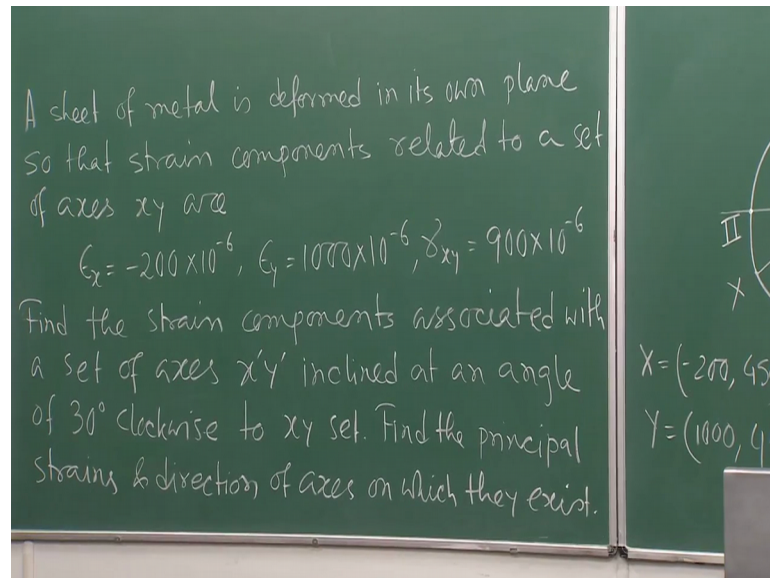 A sheet of metal is deformed in its own plane
so that strain components related to a set
of axes xy are
ϵx = -200 × 10^-6, ϵy = 1000 × 10^-6, γxy = 900 × 10^-6
Find the strain components associated with
a set of axes x'y' inclined at an angle
of 30° clockwise to xy set. Find the principal
strains & direction of axes on which they exist.
II
X
X = (-200, 45
Y = (1000, 4